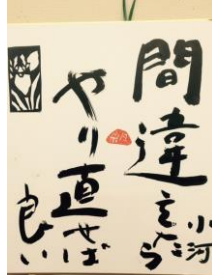 間違えたら
やり直せば
良い
小河